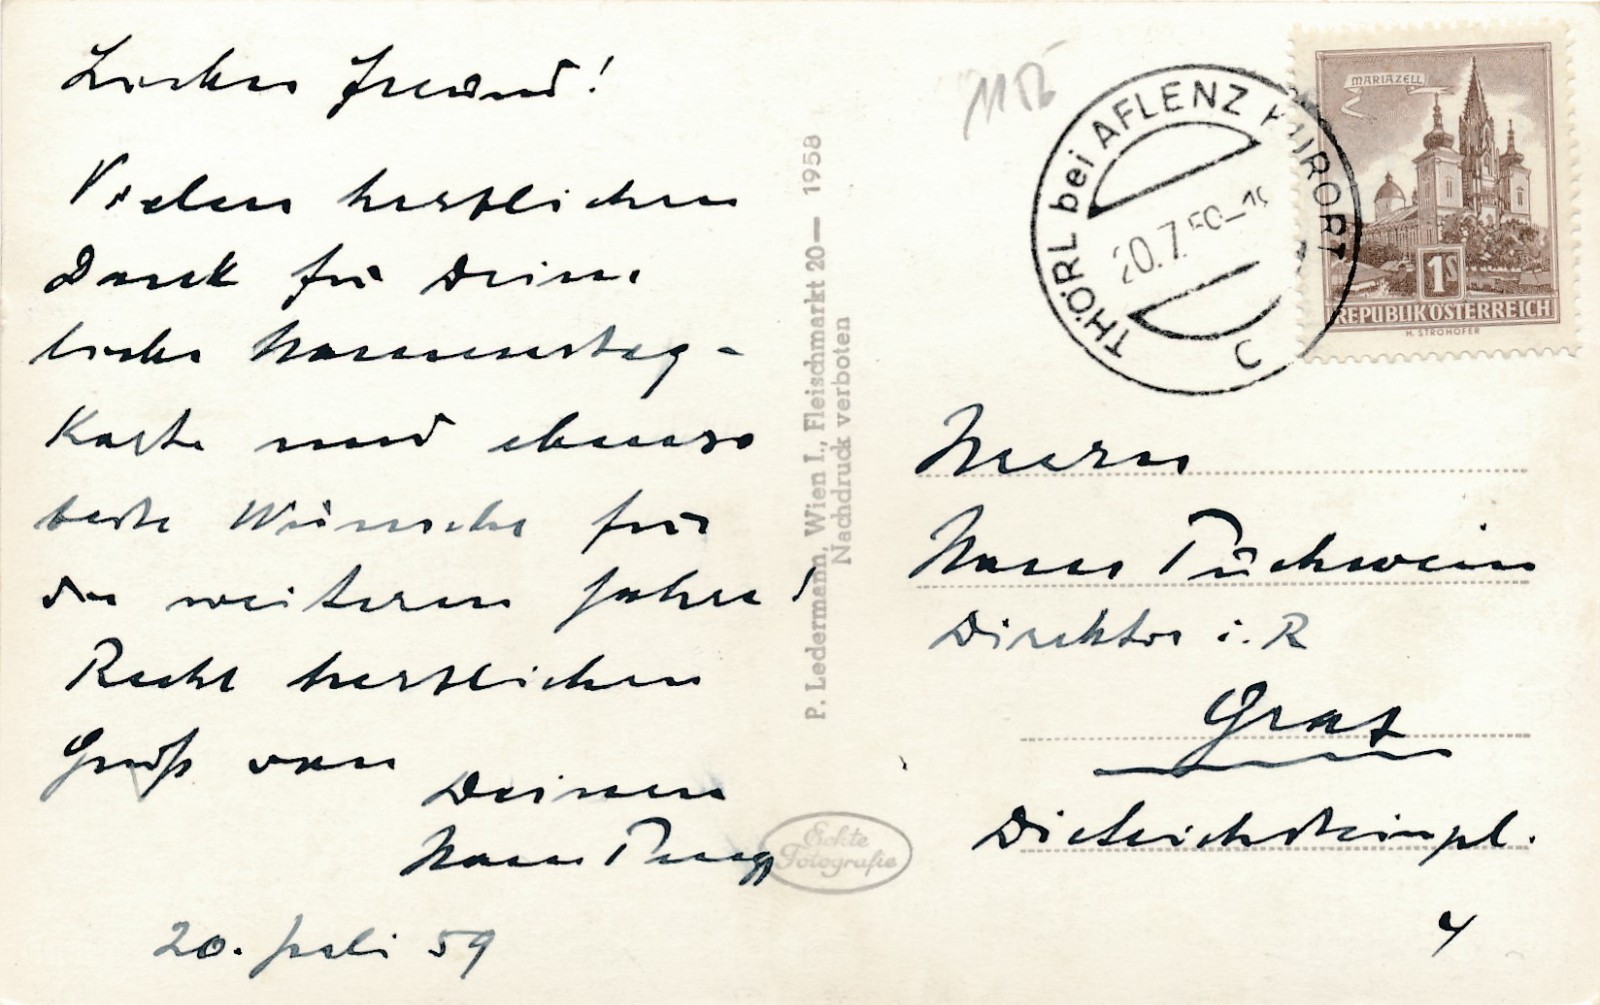 Lieber Freund!
Vielen herzlichen
Dank für Deine
liebe Namenstag-
Karte und ebenso
beste Wünsche für
die weiteren Jahre!
Recht herzlichen
Gruß von
Deinem
Hans
20. Juli 59
P. Ledermann, Wien I., Fleischmarkt 20— 1958
Nachdruck verboten
Echte
Fotografie
1152
THÖRL bei AFLENZ KURORT
20.7.59-18
MARIAZELL
1S
REPUBLIK ÖSTERREICH
H. STROHOFER
Herrn
Hans Püchwein
Direktor i. R
Graz
Dietrichsteinpl.
4